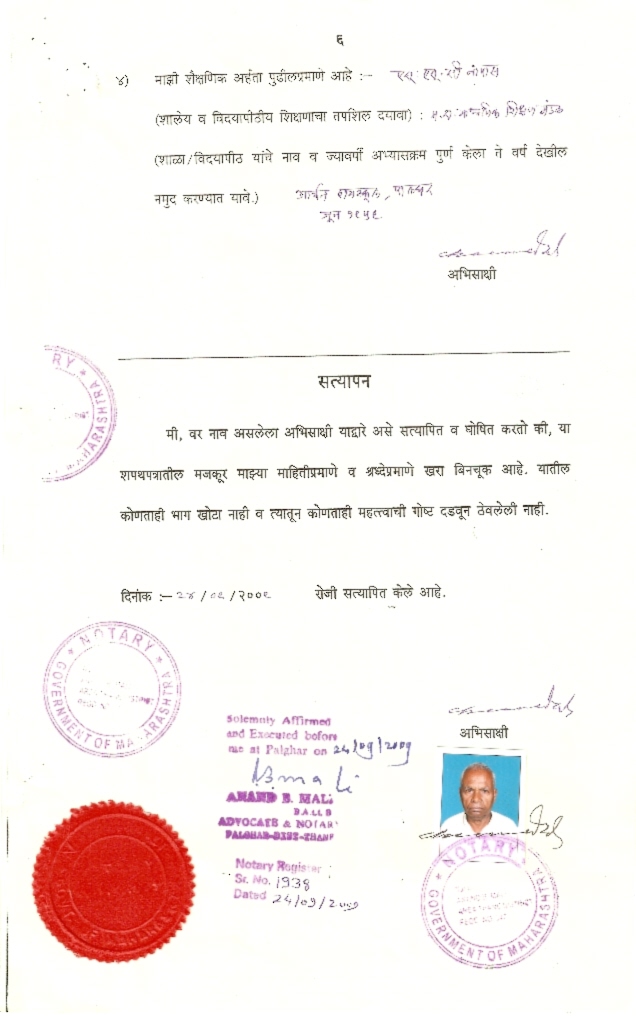 ६
४) माझी शैक्षणिक अर्हता पुढीलप्रमाणे आहे :- एस. एस. सी नापास
(शालेय व विदयापीठीय शिक्षणाचा तपशिल दयावा) : शिक्षण मंडळ
(शाळा/विदयापीठ यांचे नाव व ज्यावर्षी अभ्यासक्रम पुर्ण केला ते वर्ष देखील
नमुद करण्यात यावे.) आर्यन हायस्कूल, पालघर
जून १९५६
अभिसाक्षी
सत्यापन
मी, वर नाव असलेला अभिसाक्षी याद्वारे असे सत्यापित व घोषित करतो की, या
शपथपत्रातील मजकूर माझ्या माहितीप्रमाणे व श्रध्देप्रमाणे खरा बिनचूक आहे. यातील
कोणताही भाग खोटा नाही व त्यातून कोणताही महत्त्वाची गोष्ट दडवून ठेवलेली नाही.
दिनांक :- २४/०९/२००९ रोजी सत्यापित केले आहे.
NOTARY
GOVERNMENT OF MAHARASHTRA
Solemnly Affirmed
and Executed before
me at Palghar on 24/09/2009
ANAND B. MALI
B.A.LL.B
ADVOCATE & NOTARY
PALGHAR-DIST-THANE
Notary Register
Sr. No. 1938
Dated 24/09/2009
अभिसाक्षी
NOTARY
GOVERNMENT OF MAHARASHTRA